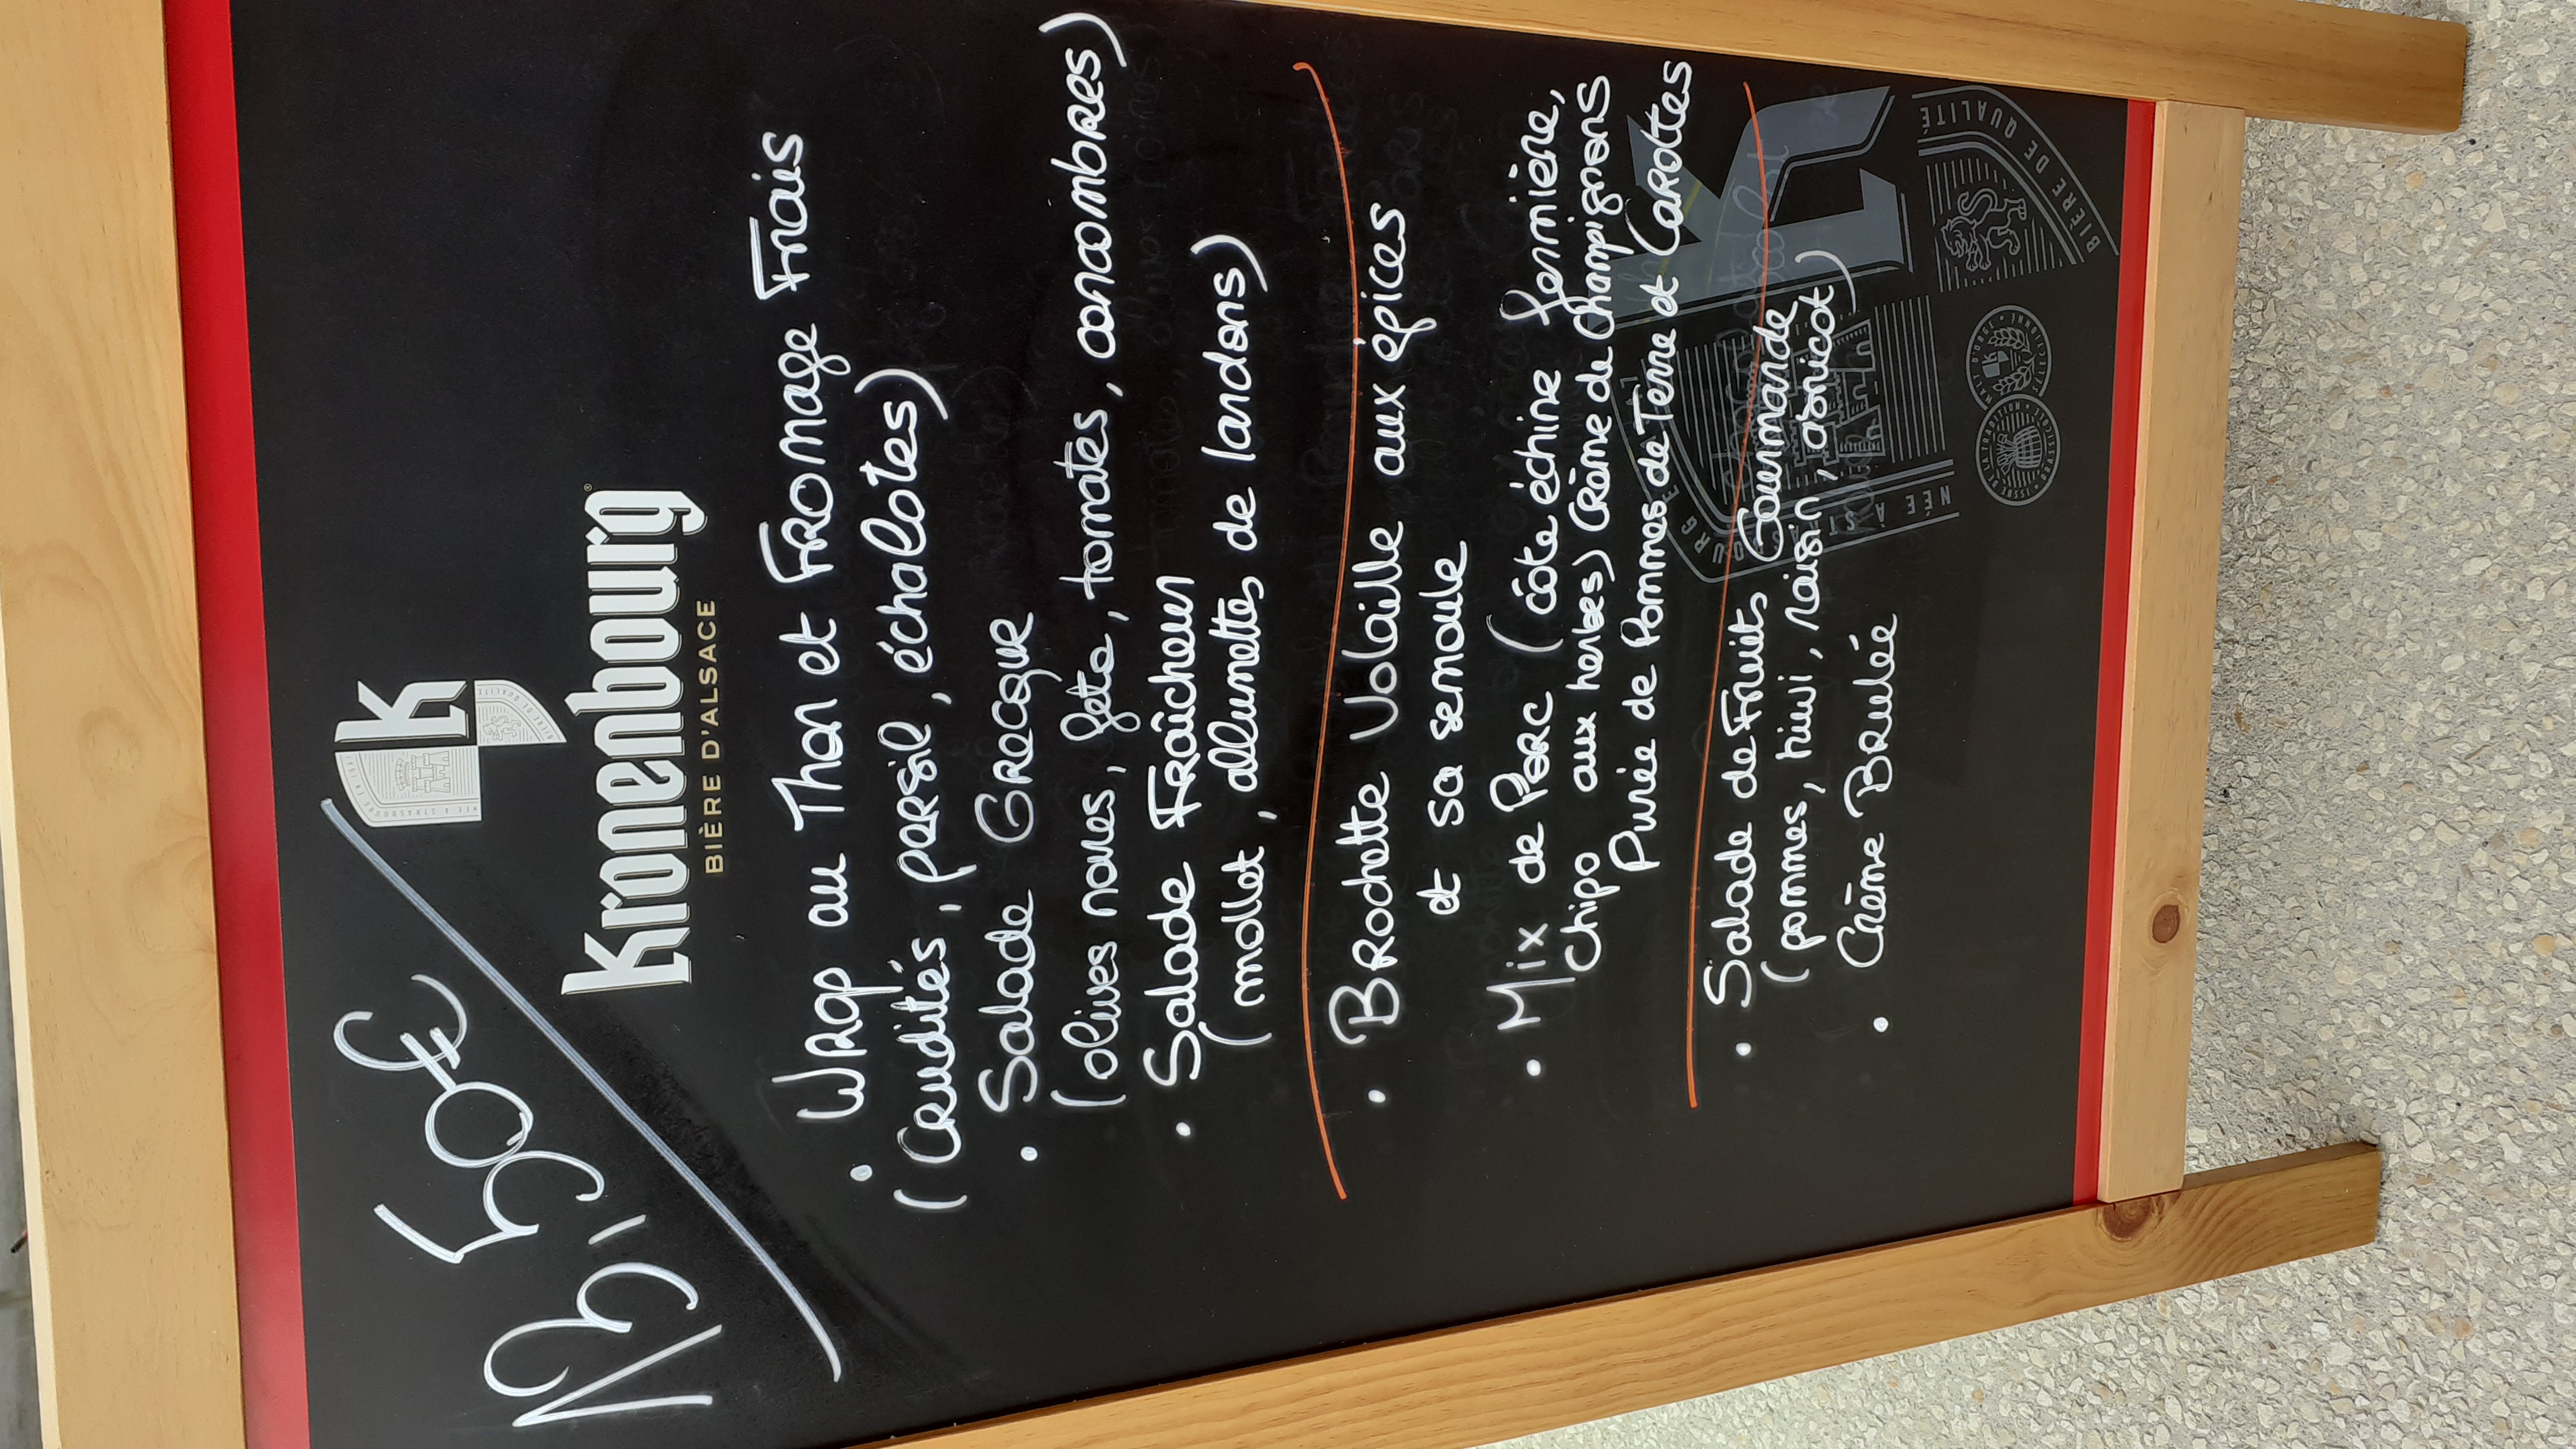 13,50€
K
Kronenbourg
BIÈRE D'ALSACE
• Wrap au Thon et Fromage Frais
(Crudités, persil, échalotes)
• Salade Grecque
(olives noires, feta, tomates, concombres)
• Salade Fraîcheur
(mollet, allumettes de lardons)
• Brochette Volaille aux épices
et sa semoule
• Mix de Porc (côte échine fermière,
Chipo aux herbes) Crème de Champignons
Purée de Pommes de Terre et Carottes
• Salade de Fruits Gourmande
(pommes, kiwi, raisin, abricot)
• Crème Brulée
NÉE À STRASBOURG
BIÈRE DE QUALITÉ